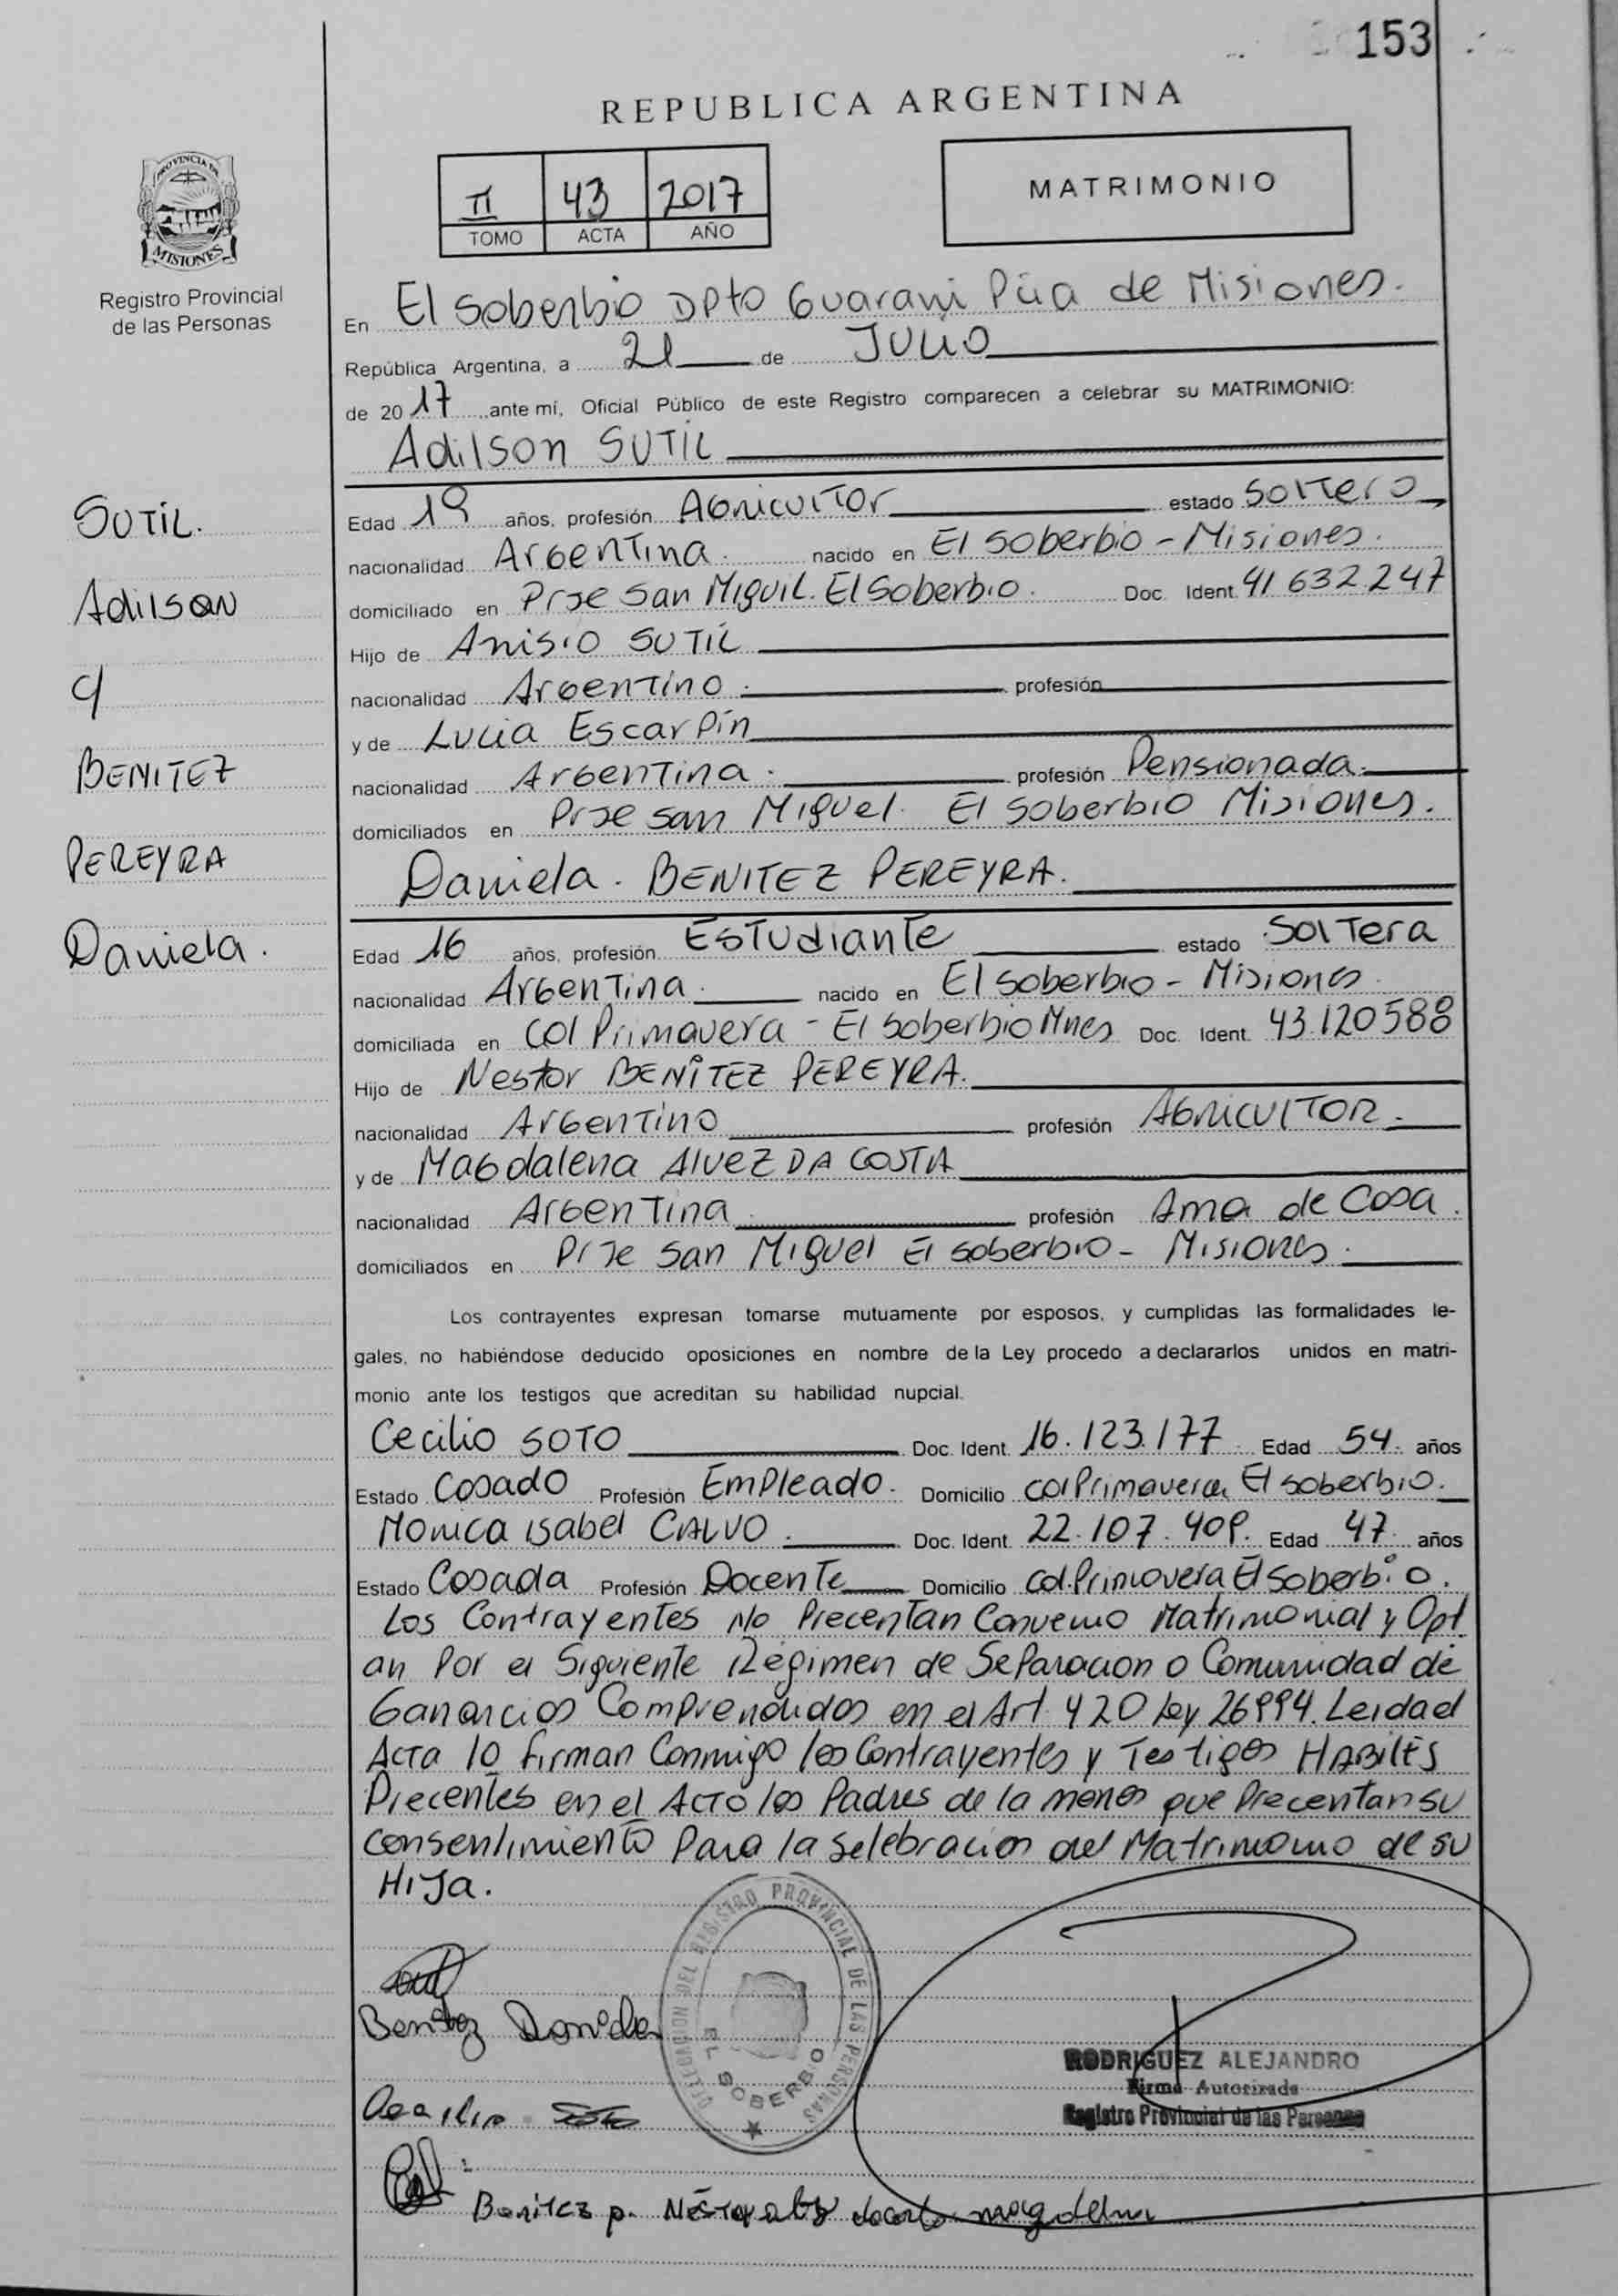 153
REPUBLICA ARGENTINA
PROVINCIA DE
MISIONES
Registro Provincial
de las Personas
II 43 2017
TOMO ACTA AÑO
MATRIMONIO
En El Soberbio Dpto Guarani Pcia de Misiones.
República Argentina, a 21 de JULIO
de 2017 ante mí, Oficial Público de este Registro comparecen a celebrar su MATRIMONIO:
Adilson SUTIL
SUTIL.
Adilson
c/
BENITEZ
PEREYRA
Daniela.
Edad 19 años, profesión Agricultor estado Soltero
nacionalidad Argentina. nacido en El Soberbio - Misiones.
domiciliado en Prje San Miguil. El Soberbio. Doc. Ident. 41 632.247
Hijo de Anisio SUTIL
nacionalidad Argentino. profesión
y de Lucia Escarpin
nacionalidad Argentina. profesión Pensionada.
domiciliados en Prje San Miguel. El Soberbio Misiones.
Daniela. BENITEZ PEREYRA.
Edad 16 años, profesión Estudiante estado Soltera
nacionalidad Argentina. nacido en El Soberbio - Misiones.
domiciliada en Col Primavera - El Soberbio Mnes Doc. Ident. 43.120588
Hijo de Nestor BENITEZ PEREYRA.
nacionalidad Argentino profesión Agricultor.
y de Magdalena Alvez DA COSTA
nacionalidad Argentina profesión Ama de Casa.
domiciliados en Prje San Miguel El Soberbio - Misiones.
Los contrayentes expresan tomarse mutuamente por esposos, y cumplidas las formalidades le-
gales, no habiéndose deducido oposiciones en nombre de la Ley procedo a declararlos unidos en matri-
monio ante los testigos que acreditan su habilidad nupcial.
Cecilio SOTO Doc. Ident. 16.123.177 Edad 54. años
Estado Casado Profesión Empleado. Domicilio Col Primavera El Soberbio.
Monica Isabel CALVO. Doc. Ident. 22.107.409. Edad 47. años
Estado Casada Profesión Docente Domicilio Col. Primavera El Soberbio.
Los Contrayentes No Precentan Convenio Matrimonial y Opt
an Por el Siguiente Régimen de Separacion o Comunidad de
Ganancias Comprendidos en el Art 420 Ley 26994. Leida el
Acta lo firman Conmigo los Contrayentes y Testigos HABILES
Precentes en el Acto los Padres de la menor que Precentan su
Consentimiento Para la Selebracion del Matrimonio de su
Hija.
Benitez Daniela
DELEGACION DEL REGISTRO PROVINCIAL DE LAS PERSONAS
EL SOBERBIO
RODRIGUEZ ALEJANDRO
Firma Autorizada
Registro Provincial de las Personas
Cecilio Soto
Benitez p. Néstor magdalena